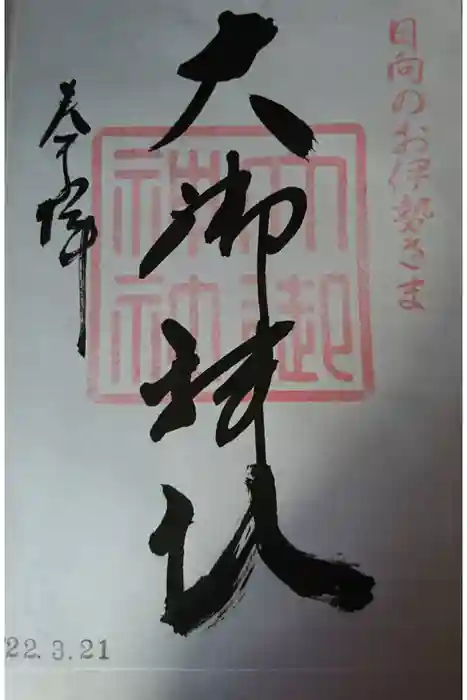 日向のお伊勢さま
大御神社
大御
神社
奉拝
22.3.21